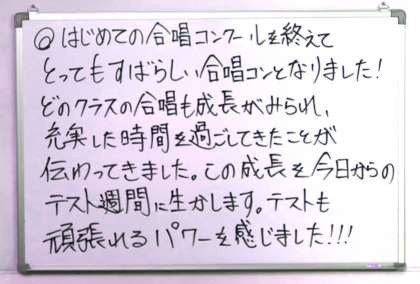 ◎はじめての合唱コンクールを終えて
とってもすばらしい合唱コンとなりました!
どのクラスの合唱も成長がみられ、
充実した時間を過ごしてきたことが
伝わってきました。この成長を今日からの
テスト週間に生かします。テストも
頑張れるパワーを感じました!!!